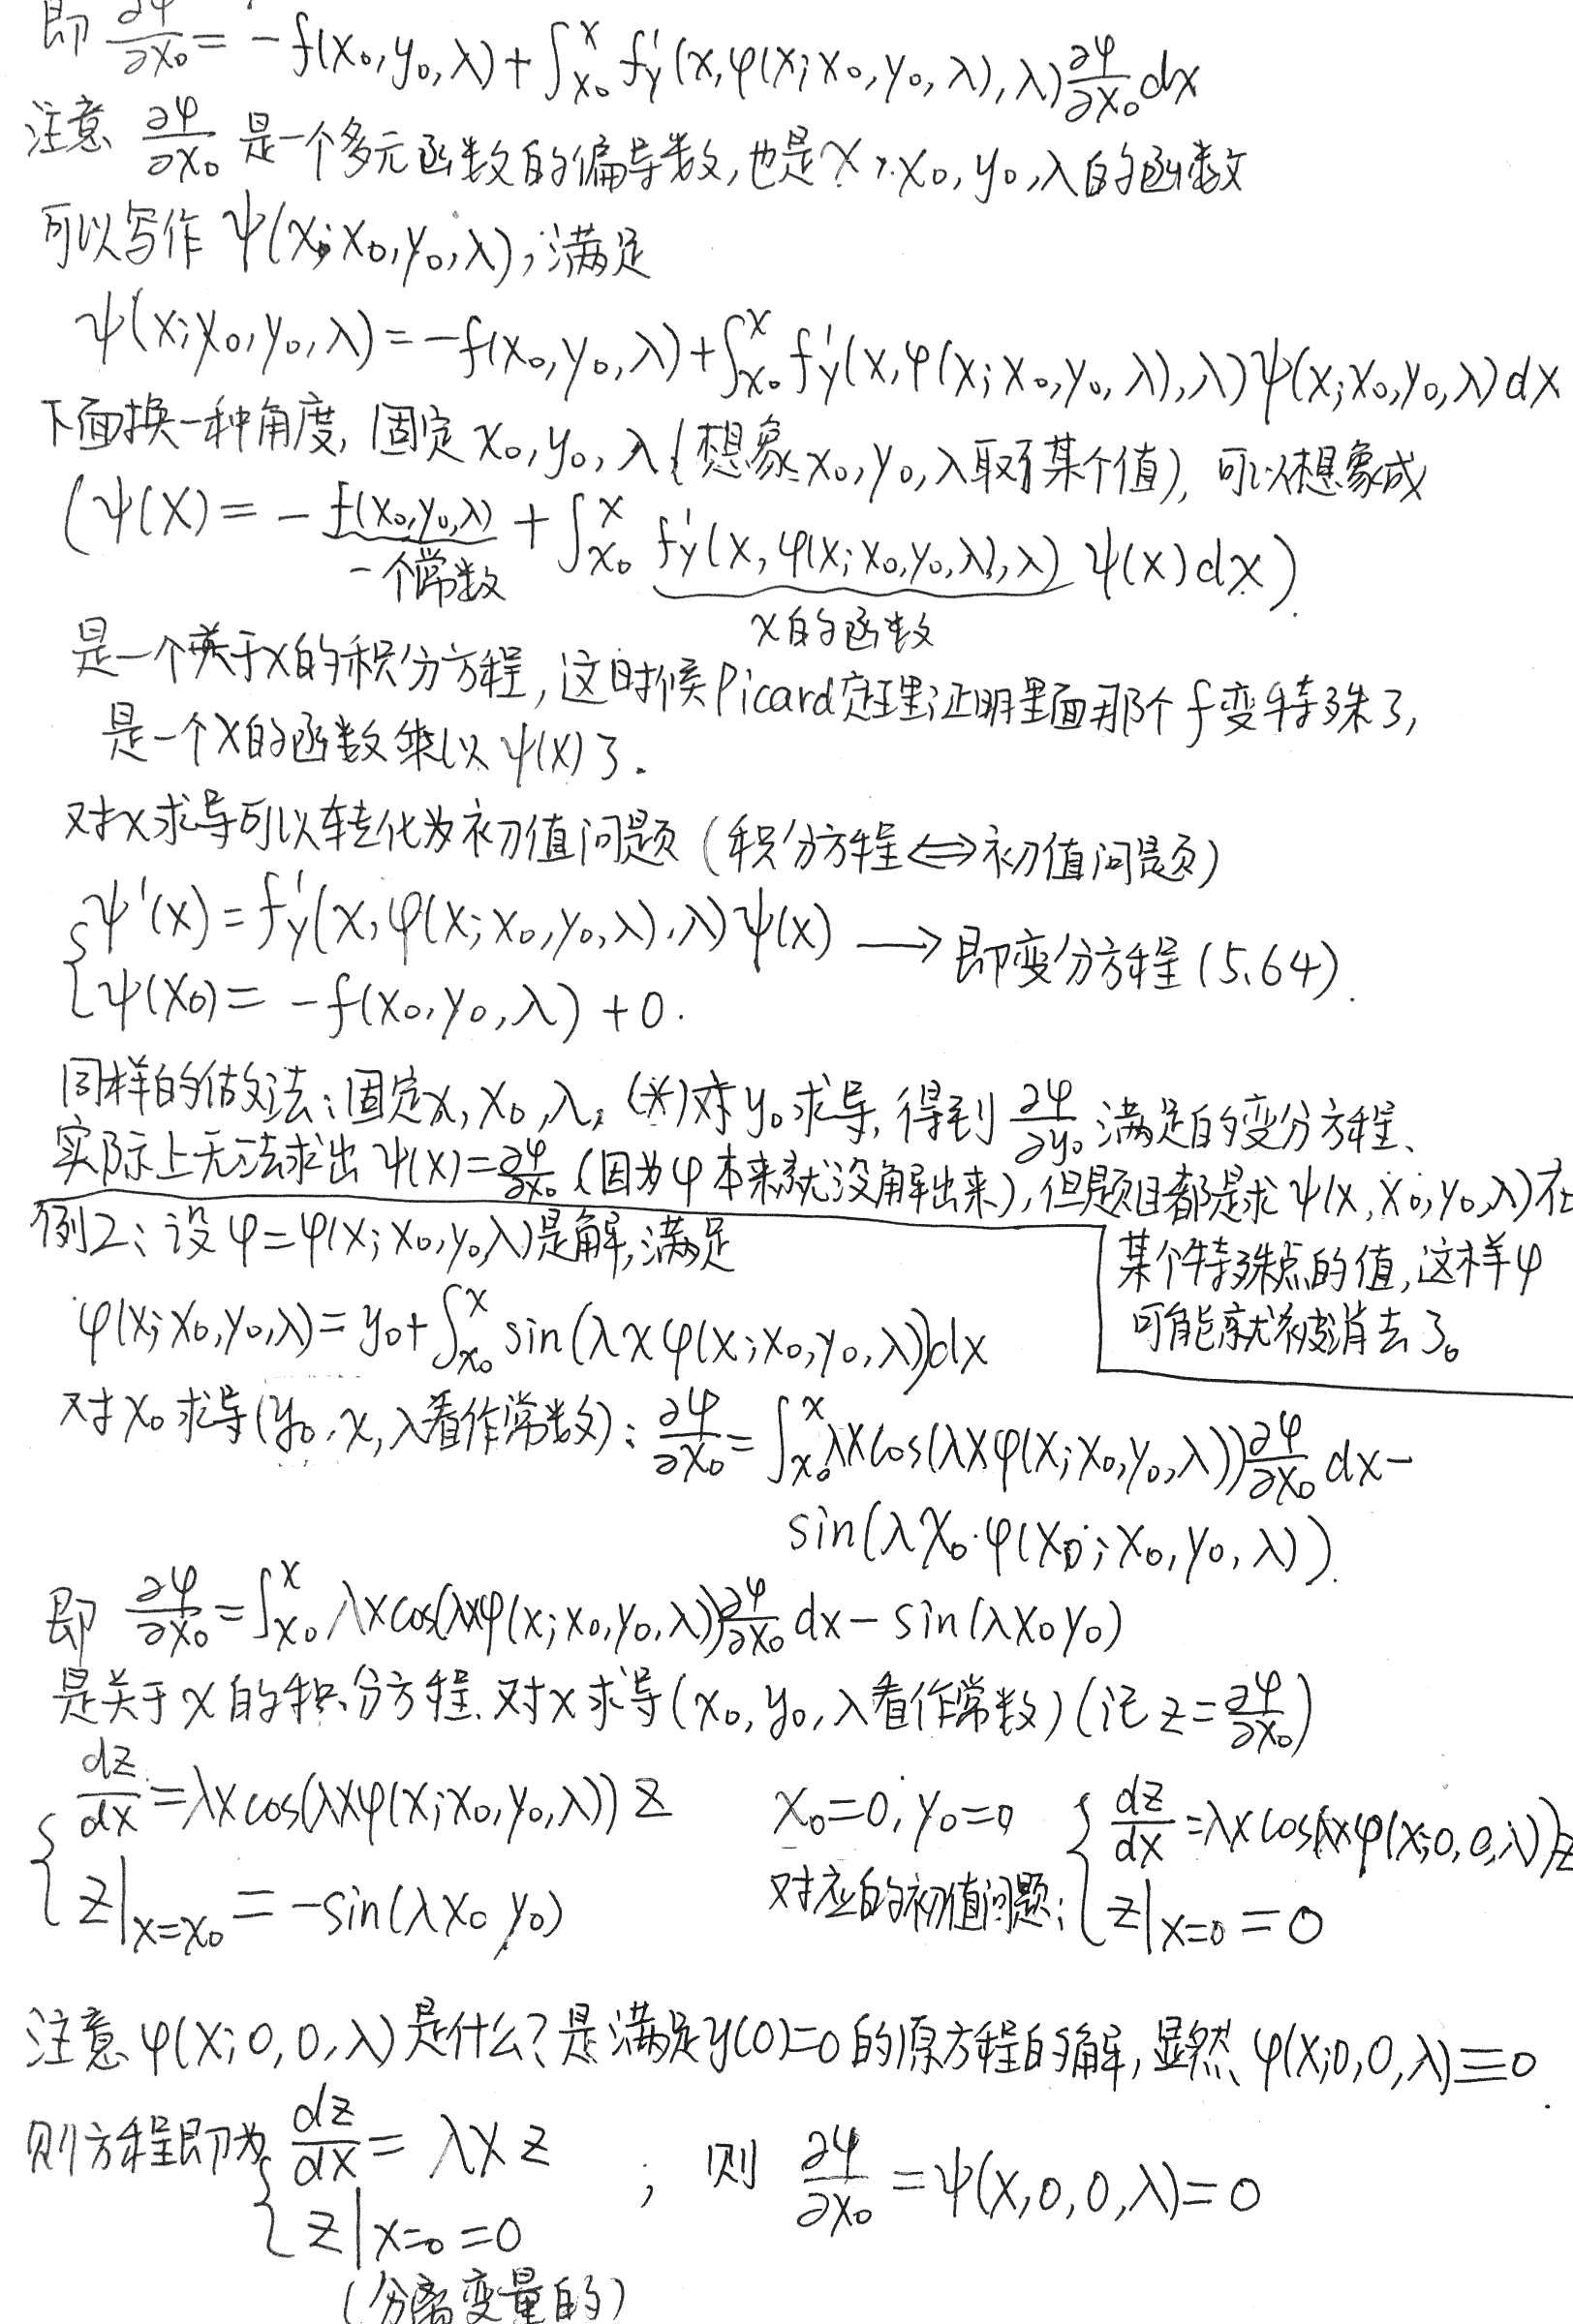 即 ∂φ/∂x₀ = -f(x₀,y₀,λ) + ∫_{x₀}^{x} f'_y(x,φ(x;x₀,y₀,λ),λ) ∂φ/∂x₀ dx
注意 ∂φ/∂x₀ 是一个多元函数的偏导数,也是x,x₀,y₀,λ的函数
可以写作 ψ(x;x₀,y₀,λ),满足
ψ(x;x₀,y₀,λ) = -f(x₀,y₀,λ) + ∫_{x₀}^{x} f'_y(x,φ(x;x₀,y₀,λ),λ)ψ(x;x₀,y₀,λ)dx
下面换一种角度,固定x₀,y₀,λ(想象x₀,y₀,λ取了某个值),可以想象成
(ψ(x) = -f(x₀,y₀,λ) + ∫_{x₀}^{x} f'_y(x,φ(x;x₀,y₀,λ),λ) ψ(x)dx).
一个常数 x的函数
是一个关于x的积分方程,这时候Picard定理证明里面那个f变特殊了,
是一个x的函数乘以ψ(x)了.
对x求导可以转化为初值问题(积分方程⇔初值问题)
{ψ'(x) = f'_y(x,φ(x;x₀,y₀,λ),λ)ψ(x) → 即变分方程(5.64).
ψ(x₀) = -f(x₀,y₀,λ)+0.
同样的做法:固定x,x₀,λ,(*)对y₀求导,得到 ∂φ/∂y₀ 满足的变分方程、
实际上无法求出ψ(x)=∂φ/∂x₀(因为φ本来就没解出来),但题目都是求ψ(x,x₀,y₀,λ)在
某个特殊点的值,这样φ
可能就被消去了。
例2:设φ=φ(x;x₀,y₀,λ)是解,满足
φ(x;x₀,y₀,λ) = y₀+∫_{x₀}^{x} sin(λxφ(x;x₀,y₀,λ))dx
对x₀求导(y₀,x,λ看作常数): ∂φ/∂x₀ = ∫_{x₀}^{x} λx cos(λxφ(x;x₀,y₀,λ)) ∂φ/∂x₀ dx -
sin(λx₀·φ(x₀;x₀,y₀,λ)).
即 ∂φ/∂x₀ = ∫_{x₀}^{x} λx cos(λxφ(x;x₀,y₀,λ)) ∂φ/∂x₀ dx - sin(λx₀y₀)
是关于x的积分方程.对x求导(x₀,y₀,λ看作常数)(记z=∂φ/∂x₀)
{dz/dx = λx cos(λxφ(x;x₀,y₀,λ))z
z|_{x=x₀} = -sin(λx₀y₀)
x₀=0,y₀=0
对应的初值问题:
{dz/dx = λx cos(λxφ(x;0,0,λ))z
z|_{x=0} = 0
注意φ(x;0,0,λ)是什么?是满足y(0)=0的原方程的解,显然φ(x;0,0,λ)≡0.
则方程即为{dz/dx = λxz ; 则 ∂φ/∂x₀ = ψ(x,0,0,λ)=0
z|_{x=0}=0
(分离变量的)